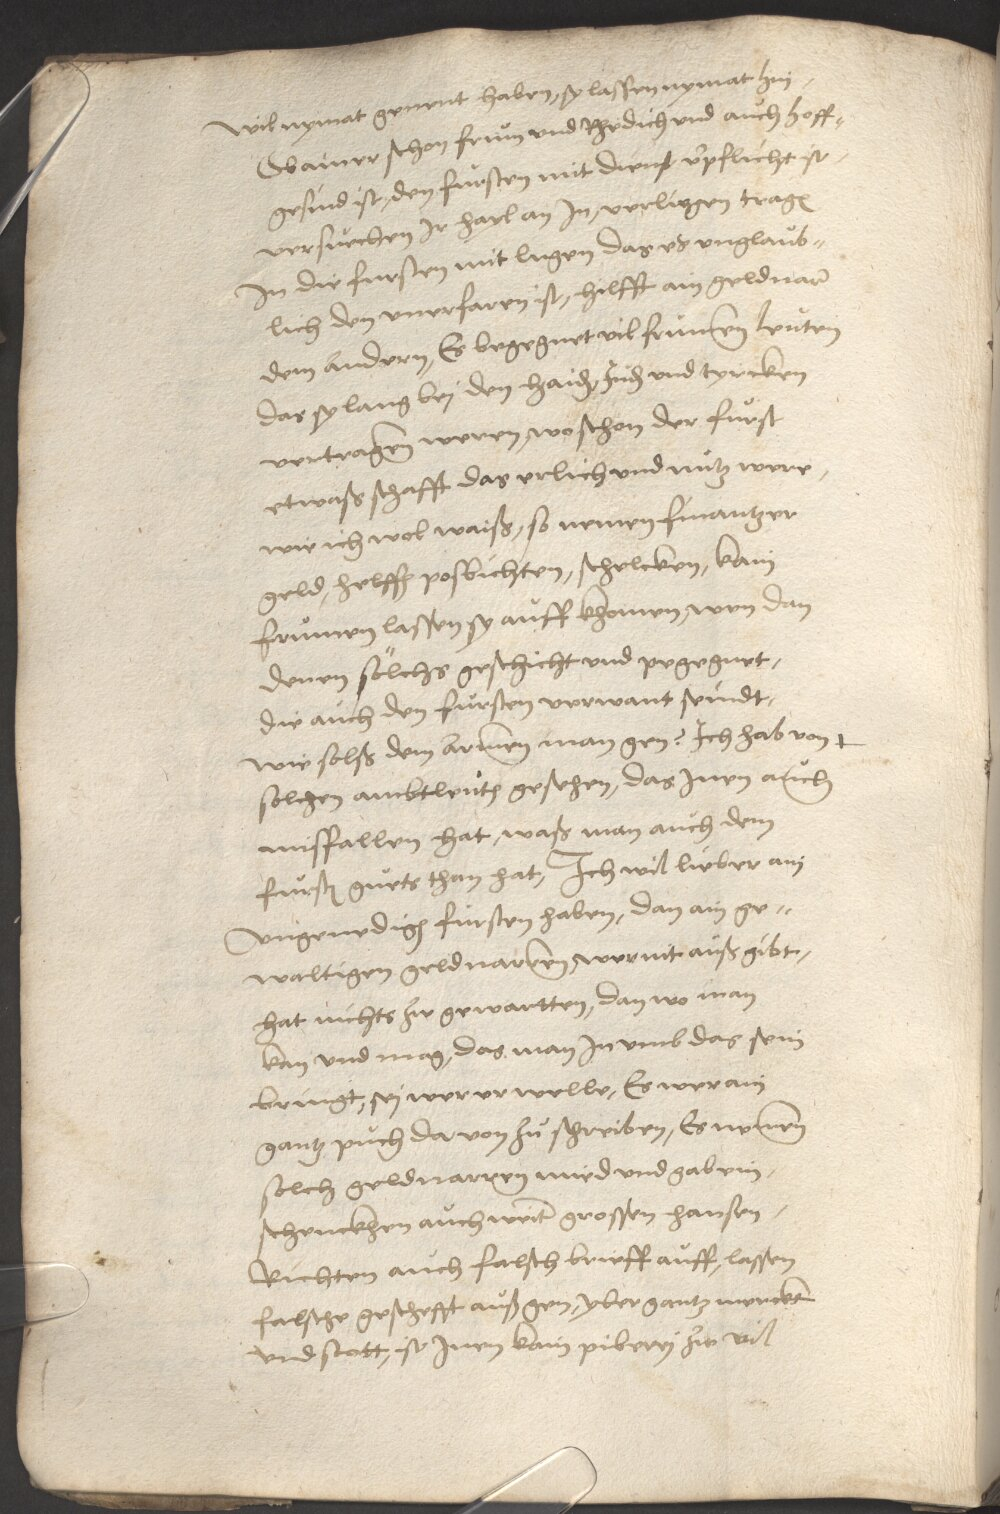 wil nymat genent haben, sy lassen nymat hin,
Ob ainer schon frum und Redlich und auch hoff„
gesind ist, den fursten mit dienst v'pflicht ist,
versuechen Ir hayl an In, verligen tragen
In die fursten mit lugen das es unglaub„
lich den unerfaren ist, hilfft ain geldnar
dem andern, Es begegnet vil frumen leuten
das sy lang bej den haiden Juden und tyrcken
vertragen weren, wo schon der furst
etwass schafft das erlich und nutz were,
wie ich wol waiss, so nemen finantzer
geld, helffen posbichten, schelcken, kain
frumen lassen sy auff khomen, wen dan
denen sölchs geschicht und pegegnet,
die auch den fursten verwant seindt,
wie solss dem armen man gen? Ich hab von
solchen ambtleuten gesehen, das Inen auch
missfallen hat, wass man auch dem
fursten guets than hat, Ich wil lieber ain
ungenedigen fursten haben, dan ain ge„
waltigen geldnarren, wer nit auss gibt,
hat nichts zu gewartten, dan wo man
kan und mag, das man In umb das sein
bringt, sej wer er welle, Es wer ain
gantz puch da von zu schreiben, Es nemen
solch geldnarren mied und gab ein,
schenckhen auch weit grossen hansen,
Richten auch falsch brieff auff, lassen
falsche geschefft auss gen, yber gantz merckt
und stett, ist Inen kain piberej zu vil